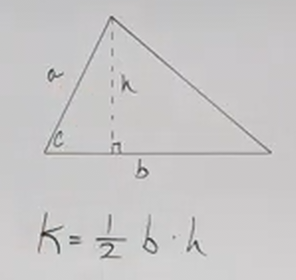 a
h
C
b
K = 1/2 b · h